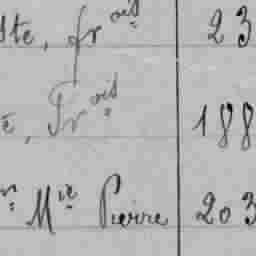 ste, frois 23
e, Frois 188
n Mie Pierre 203